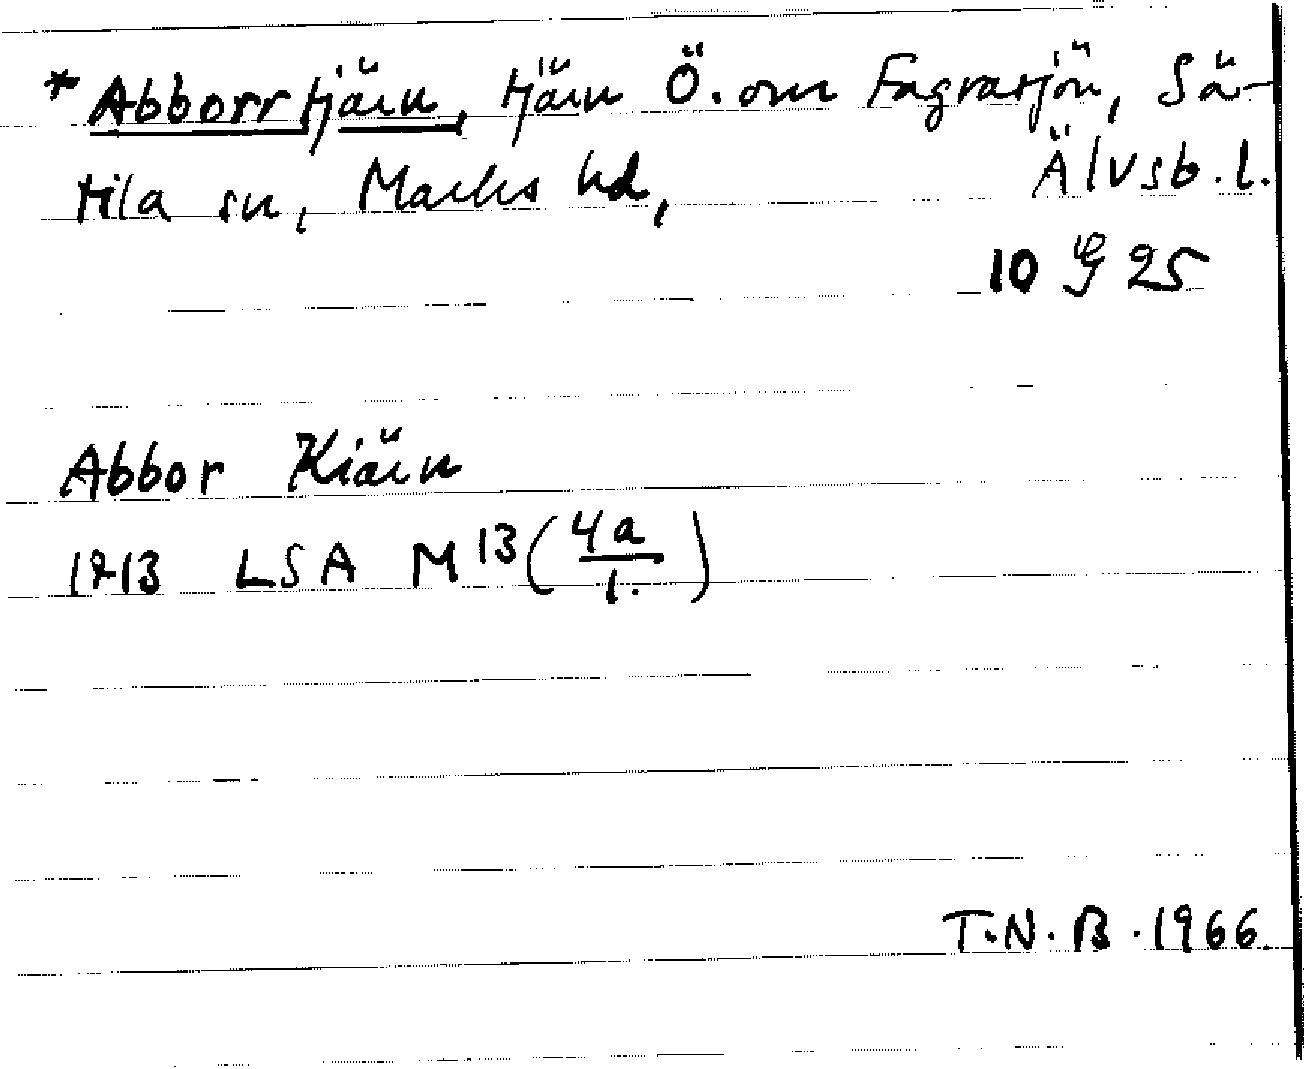 * Abborrtjärn, tjärn Ö. om Fagrasjön, Sä-
tila sn, Marks hd, Älvsb. l.
10 G 25
Abbor Kiärn
LSA M 13 (4a/1.)
T.N.B. 1966.